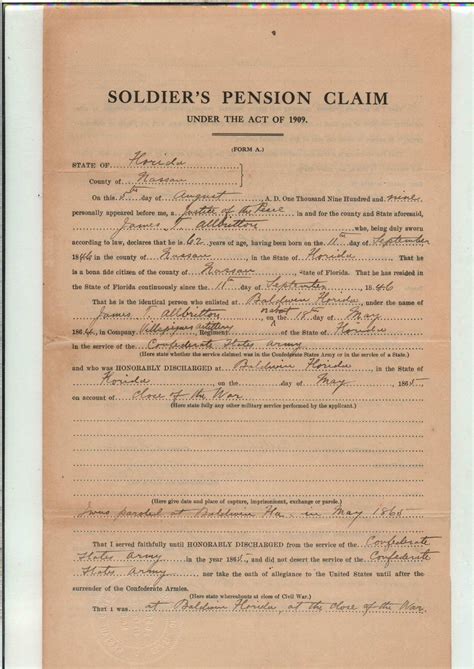 SOLDIER'S PENSION CLAIM
UNDER THE ACT OF 1909.
(FORM A.)
STATE OF Florida
County of Nassau
On this 5th day of August A. D. One Thousand Nine Hundred and nine
personally appeared before me, a Justice of the Peace in and for the county and State aforesaid,
James T. Allbritton who, being duly sworn
according to law, declares that he is 62 years of age, having been born on the 11th day of September
1846 in the county of Nassau, in the State of Florida. That he
is a bona fide citizen of the county of Nassau, State of Florida. That he has resided in
the State of Florida continuously since the 11th day of September 1846
That he is the identical person who enlisted at Baldwin Florida, under the name of
James T. Allbritton, on about the 18th day of May
1864, in Company Villepigues artillery Regiment of the State of Florida
in the service of the Confederate States Army
(Here state whether the service claimed was in the Confederate States Army or in the service of a State.)
and who was HONORABLY DISCHARGED at Baldwin Florida in the State of
Florida on the day of May, 1865
on account of close of the War
(Here state fully any other military service performed by the applicant.)
(Here give date and place of capture, imprisonment, exchange or parole.)
I was paroled at Baldwin Fla. in May 1865
That I served faithfully until HONORABLY DISCHARGED from the service of the Confederate
States Army in the year 1865, and did not desert the service of Confederate
States Army nor take the oath of allegiance to the United States until after the
surrender of the Confederate Armies.
(Here state whereabouts at close of Civil War.)
That I was at Baldwin Florida, at the close of the War.